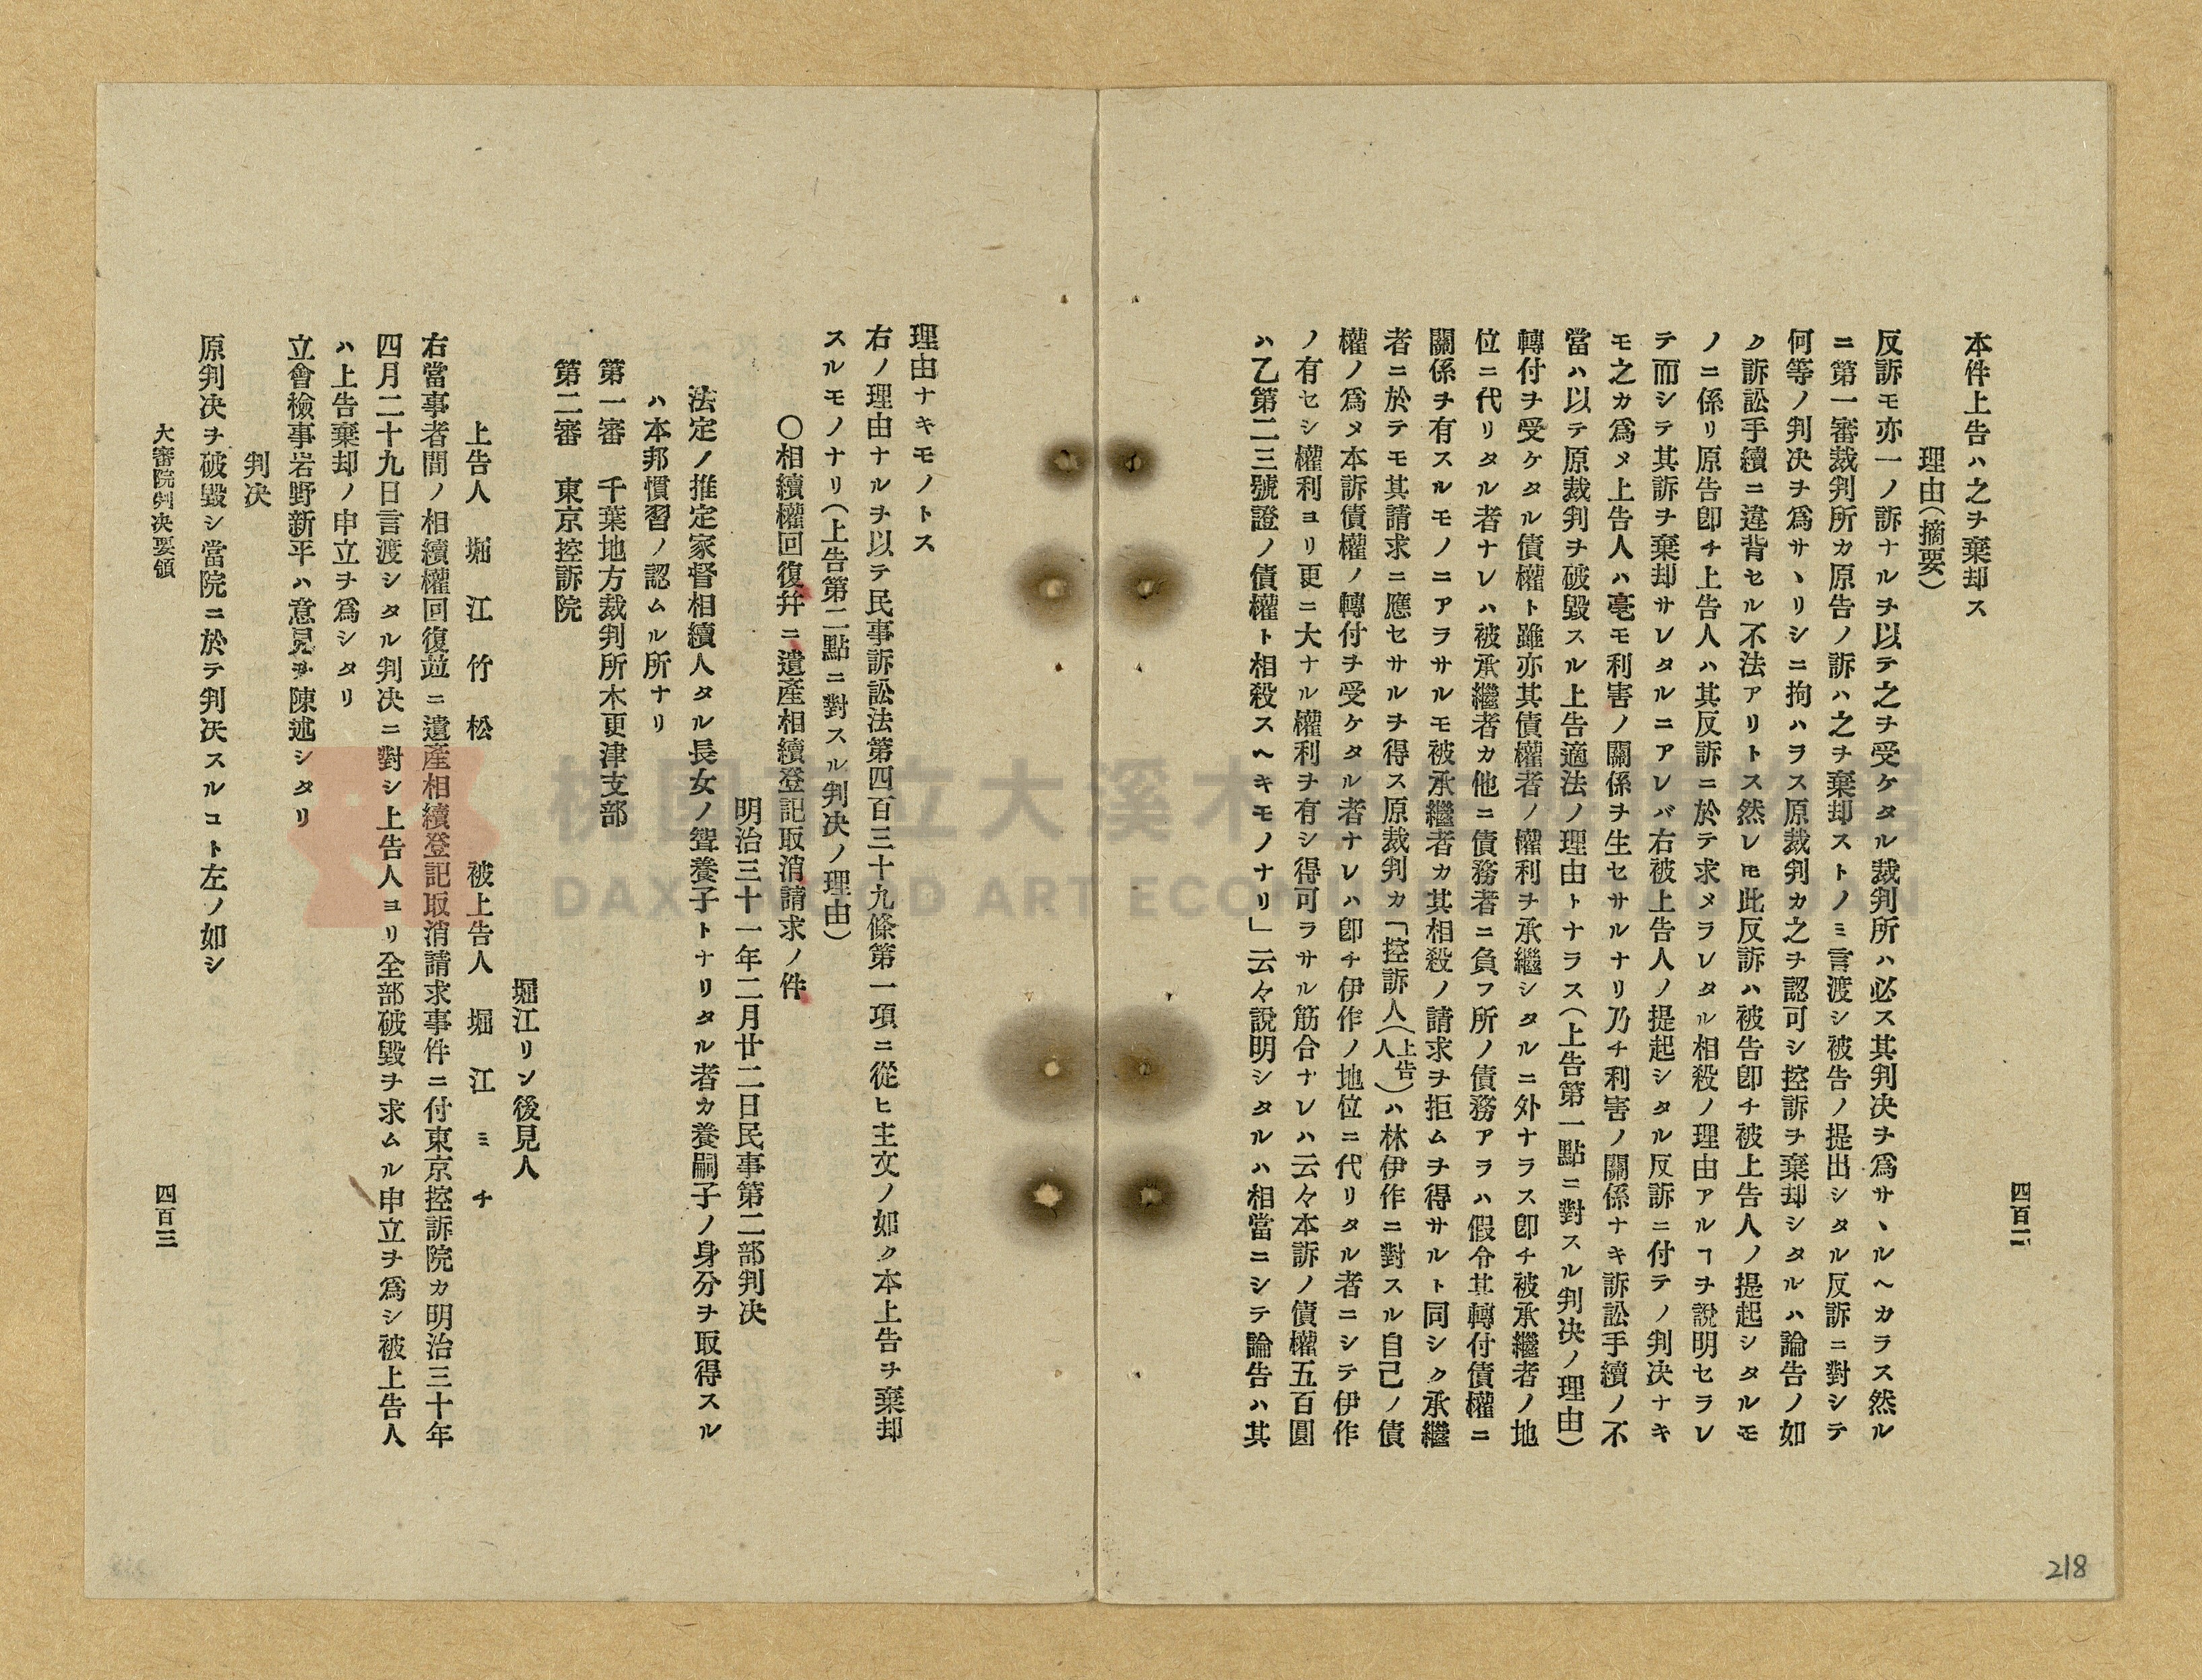 四百二
本件上告ハ之ヲ棄却ス
理由(摘要)
反訴モ亦一ノ訴ナルヲ以テ之ヲ受ケタル裁判所ハ必ス其判决ヲ爲サヽルヘカラス然ル
ニ第一審裁判所カ原告ノ訴ハ之ヲ棄却ストノミ言渡シ被告ノ提出シタル反訴ニ對シテ
何等ノ判决ヲ爲サヽリシニ拘ハラス原裁判カ之ヲ認可シ控訴ヲ棄却シタルハ論告ノ如
ク訴訟手續ニ違背セル不法アリトス然レ𪜈此反訴ハ被告卽チ被上告人ノ提起シタルモ
ノニ係リ原告卽チ上告人ハ其反訴ニ於テ求メラレタル相殺ノ理由アルヿヲ說明セラレ
テ而シテ其訴ヲ棄却サレタルニアレバ右被上告人ノ提起シタル反訴ニ付テノ判决ナキ
モ之カ爲メ上告人ハ毫モ利害ノ關係ヲ生セサルナリ乃チ利害ノ關係ナキ訴訟手續ノ不
當ハ以テ原裁判ヲ破毀スル上告適法ノ理由トナラス(上告第一點ニ對スル判决ノ理由)
轉付ヲ受ケタル債權ト雖亦其債權者ノ權利ヲ承繼シタルニ外ナラス卽チ被承繼者ノ地
位ニ代リタル者ナレハ被承繼者カ他ニ債務者ニ負フ所ノ債務アラハ假令其轉付債權ニ
關係ヲ有スルモノニアラサルモ被承繼者カ其相殺ノ請求ヲ拒ムヲ得サルト同シク承繼
者ニ於テモ其請求ニ應セサルヲ得ス原裁判カ「控訴人(上告人)ハ林伊作ニ對スル自己ノ債
權ノ爲メ本訴債權ノ轉付ヲ受ケタル者ナレハ卽チ伊作ノ地位ニ代リタル者ニシテ伊作
ノ有セシ權利ヨリ更ニ大ナル權利ヲ有シ得可ラサル筋合ナレハ云々本訴ノ債權五百圓
ハ乙第二三號證ノ債權ト相殺スヘキモノナリ」云々說明シタルハ相當ニシテ論告ハ其
218
理由ナキモノトス
右ノ理由ナルヲ以テ民事訴訟法第四百三十九條第一項ニ從ヒ主文ノ如ク本上告ヲ棄却
スルモノナリ(上告第二點ニ對スル判决ノ理由)
〇相續權回復幷ニ遺產相續登記取消請求ノ件
明治三十一年二月廿二日民事第二部判决
法定ノ推定家督相續人タル長女ノ聟養子トナリタル者カ養嗣子ノ身分ヲ取得スル
ハ本邦慣習ノ認ムル所ナリ
第一審 千葉地方裁判所木更津支部
第二審 東京控訴院
堀江リン後見人
上告人 堀江竹松 被上告人 堀江ミチ
右當事者間ノ相續權回復並ニ遺產相續登記取消請求事件ニ付東京控訴院カ明治三十年
四月二十九日言渡シタル判决ニ對シ上告人ヨリ全部破毀ヲ求ムル申立ヲ爲シ被上告人
ハ上告棄却ノ申立ヲ爲シタリ
立會檢事岩野新平ハ意見ヲ陳述シタリ
判决
原判决ヲ破毀シ當院ニ於テ判决スルコト左ノ如シ
大審院判决要領
四百三
DAXI WOOD ART ECOMUSEUM, TAOYUAN